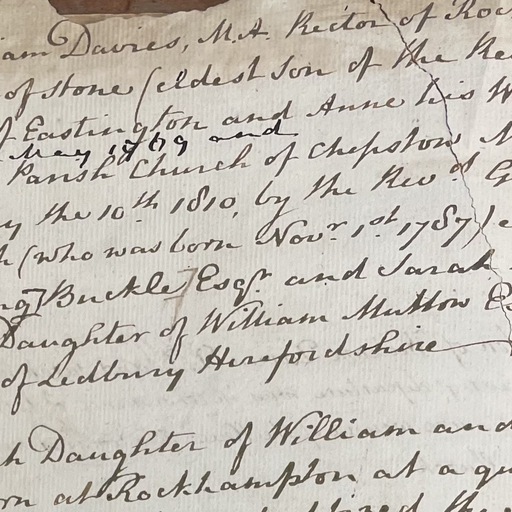 iam Davies, M.A. Rector of Rock
of Stone (eldest Son of the Re
f Eastington and Anne his W
May 1769 and
Parish Church of Chepstow M
y the 10th 1810, by the Revd. G
h (who was born Novr. 1st 1787)
ng] Buckle] Esqr. and Sarah
Daughter of William Muttow Es
of Ledbury Herefordshire
h Daughter of William and
rn at Rockhampton at a qu
the